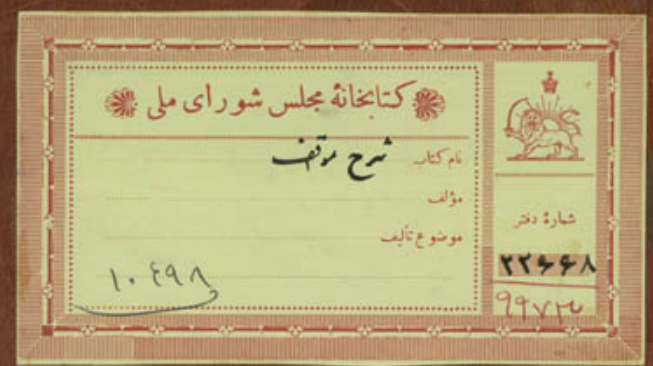 کتابخانهٔ مجلس شورای ملی
نام کتاب شرح موقف
مؤلف
موضوع تألیف
۱۰۴۹۸
شمارهٔ دفتر
۲۲۶۶۸
۹۹۷۳